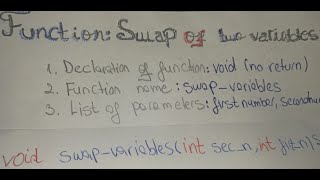 Function: Swap of two variables
1. Declaration of function: void (no return)
2. Function name: swap-variables
3. List of parameters: first number, secondnum
void swap-variables(int sec.n, int fir.n);